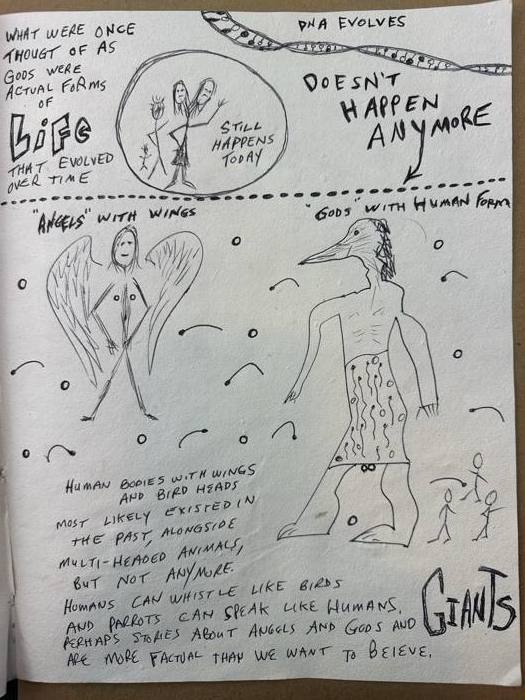 WHAT WERE ONCE
THOUGT OF AS
GODS WERE
ACTUAL FORMS
OF
LiFe
THAT EVOLVED
OVER TIME
STILL
HAPPENS
TODAY
DNA EVOLVES
DOESN'T
HAPPEN
ANYMORE
"ANGELS" WITH WINGS
"GODS" WITH HUMAN FORM
HUMAN BODIES WITH WINGS
AND BIRD HEADS
MOST LIKELY EXISTED IN
THE PAST, ALONGSIDE
MULTI-HEADED ANIMALS,
BUT NOT ANYMORE.
HUMANS CAN WHISTLE LIKE BIRDS
AND PARROTS CAN SPEAK LIKE HUMANS.
PERHAPS STORIES ABOUT ANGELS AND GODS AND GIANTS
ARE MORE FACTUAL THAN WE WANT TO BEIEVE.